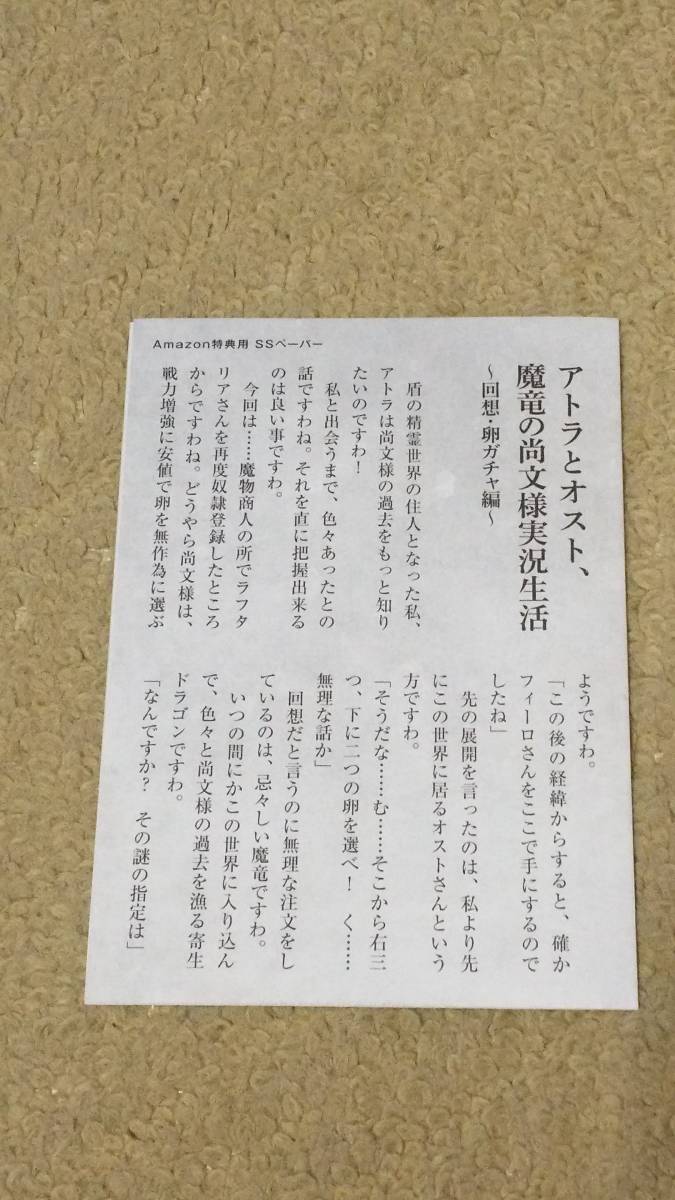 Amazon特典用 SSペーパー
アトラとオスト、
魔竜の尚文様実況生活
～回想・卵ガチャ編～
盾の精霊世界の住人となった私、
アトラは尚文様の過去をもっと知り
たいのですわ！
私と出会うまで、色々あったとの
話ですわね。それを直に把握出来る
のは良い事ですわ。
今回は……魔物商人の所でラフタ
リアさんを再度奴隷登録したところ
からですわね。どうやら尚文様は、
戦力増強に安値で卵を無作為に選ぶ
ようですわ。
「この後の経緯からすると、確か
フィーロさんをここで手にするので
したね」
先の展開を言ったのは、私より先
にこの世界に居るオストさんという
方ですわ。
「そうだな……む……そこから右三
つ、下に二つの卵を選べ！　く……
無理な話か」
回想だと言うのに無理な注文をし
ているのは、忌々しい魔竜ですわ。
いつの間にかこの世界に入り込ん
で、色々と尚文様の過去を漁る寄生
ドラゴンですわ。
「なんですか？　その謎の指定は」